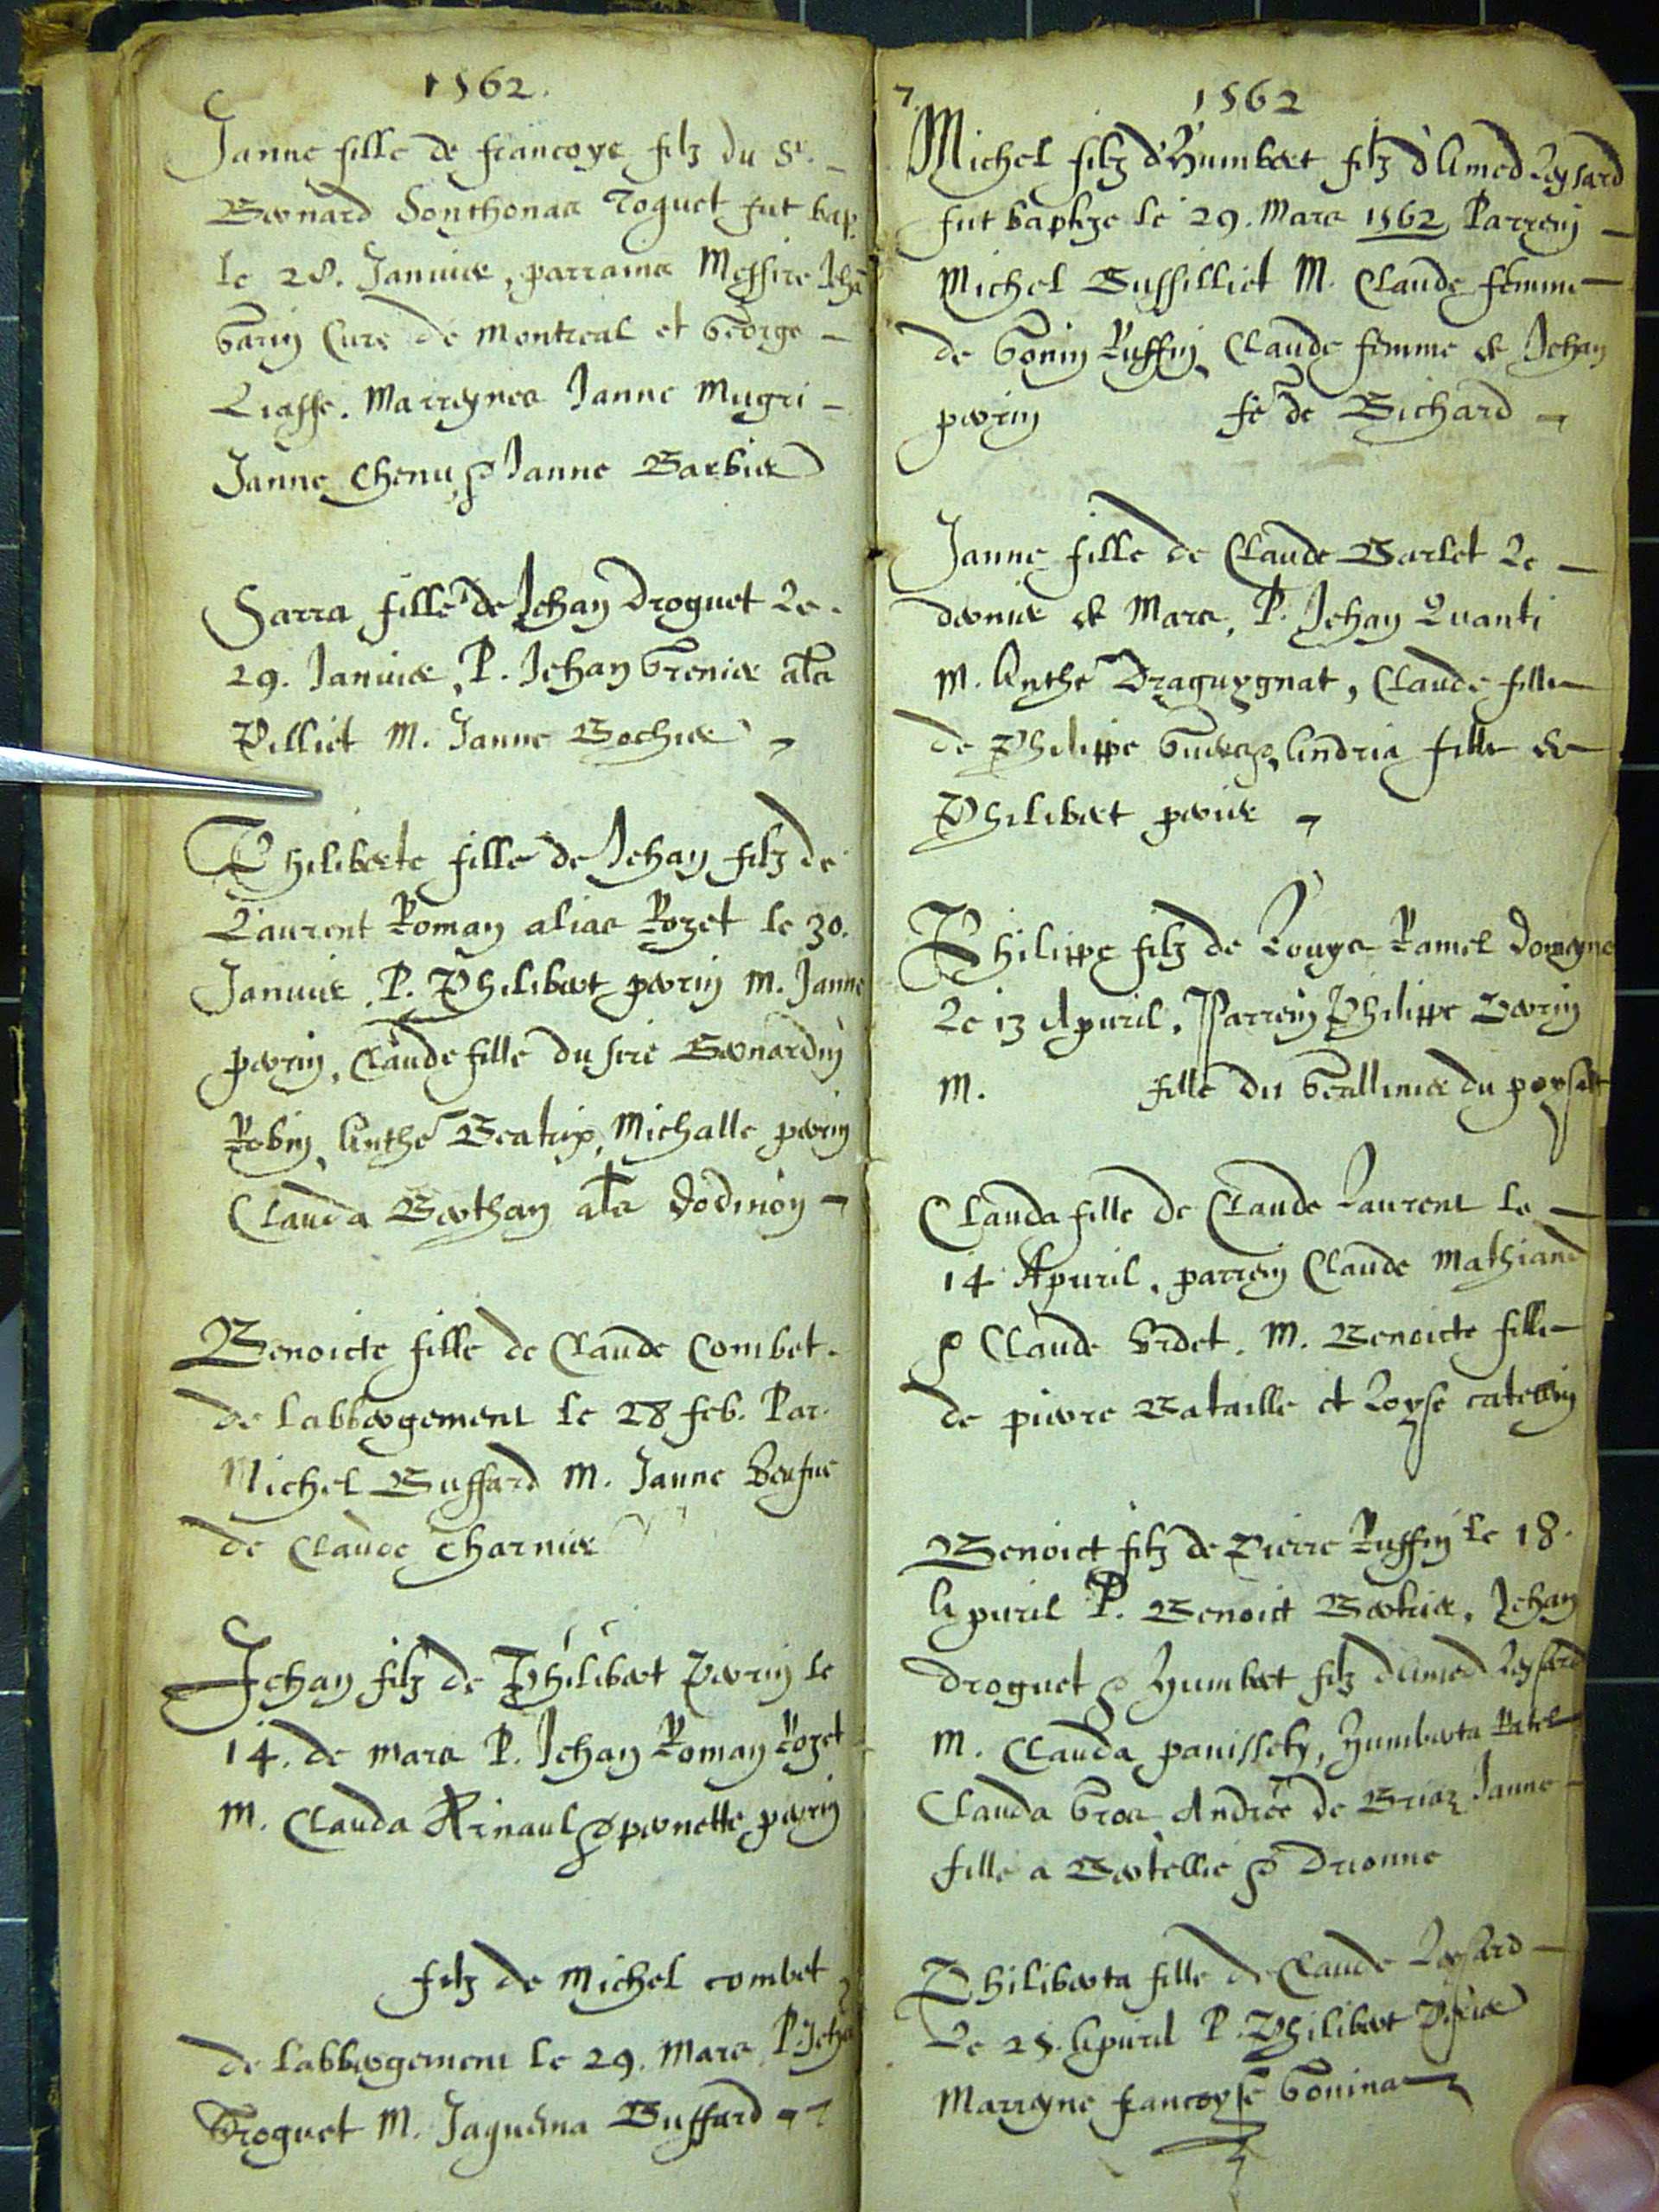 1562.
Janne fille de francoys filz du Sr.
Bernard Sonthonas Roguet fut bap.
le 28. Januier, parrains Messire Jehā
Garin Cure de Montreal et George
Liasse. Marreynes Janne Mugri
Janne Chenu, & Janne Barbier
Sarra fille de Jehan Droguet le.
29. Januier, P. Jehan Grenier als
Pilliet M. Janne Bochier
Philiberte fille de Jehan filz de
Laurent Roman alias Rozet le 30.
Januier. P. Philibert perrin M. Janne
perrin, Claude fille du sire Bernardin
Robin, Anthe Beatrix, Michalle perrin
Clauda Berthan als Dodmon
Benoicte fille de Claude Combet.
de labbergement le 28 feb. Par.
Michel Buffard M. Janne Veufue
de Claude Charnier
Jehan filz de Philibert Perrin le
14. de mars P. Jehan Roman Rozet
M. Clauda Arnaul & pernette perrin
filz de Michel combet
de labbergement le 29. Mars P. Jehā
Droguet M. Jaquema Buffard
7. 1562
Michel filz d'Humbert filz d'Amed Leysard
fut baptize le 29. Mars 1562 Parrein
Michel Bussilliet M. Claude femme
de Gonin Ruffin, Claude femme de Jehan
perrin fe de Bichard
Janne fille de Claude Barlet le
dernier de Mars, P. Jehan Quanti
M. Anthe Draguygnat, Claude fille
de Philippe, Andria fille de
Philibert perier
Philippe filz de Louys Ramel Domeyne
Le 13 Apuril. Parrein Philippe Perrin
M. fille du du poysat
Clauda fille de Claude Laurent le
14 Apuril. parrein Claude Mathiand
& Claude Videt. M. Benoicte fille
de pierre Bataille et Loyse catellin
Benoict filz de Pierre Ruffin le 18.
Apuril P. Benoict Bertrier, Jehan
Droguet & Humbert filz d'Amed Leysard
M. Clauda panissety, Humberta Ratel
Clauda Gros Andree de Briaz Janne
fille a Bertellie & Drionne
Philiberta fille de Claude Leysard
Le 25. Apuril P. Philibert
Marreyne francoyse Gonina